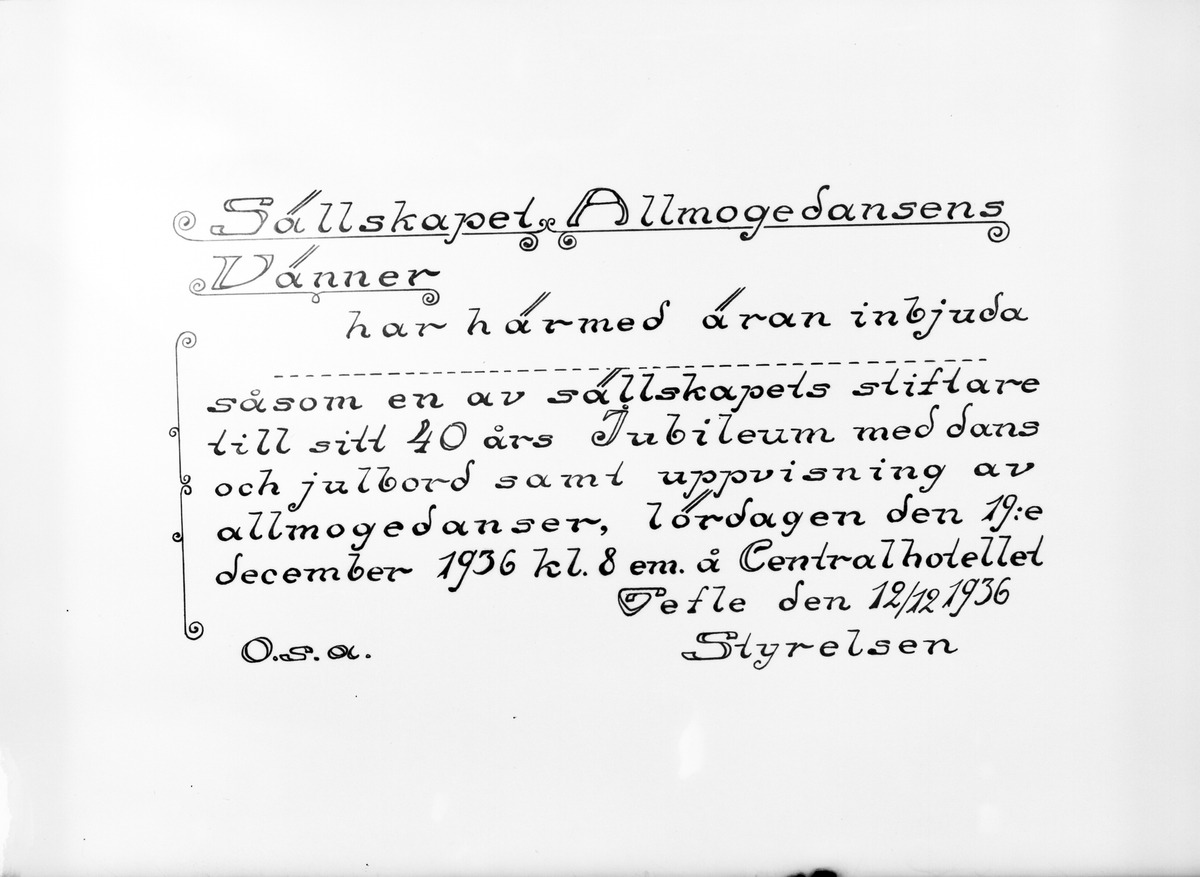 Sällskapet Allmogedansens
Vänner
har härmed äran inbjuda
såsom en av sällskapets stiftare
till sitt 40 års Jubileum med dans
och julbord samt uppvisning av
allmogedanser, lördagen den 19:e
december 1936 kl. 8 em. å Centralhotellet
Gefle den 12/12 1936
O.s.a. Styrelsen